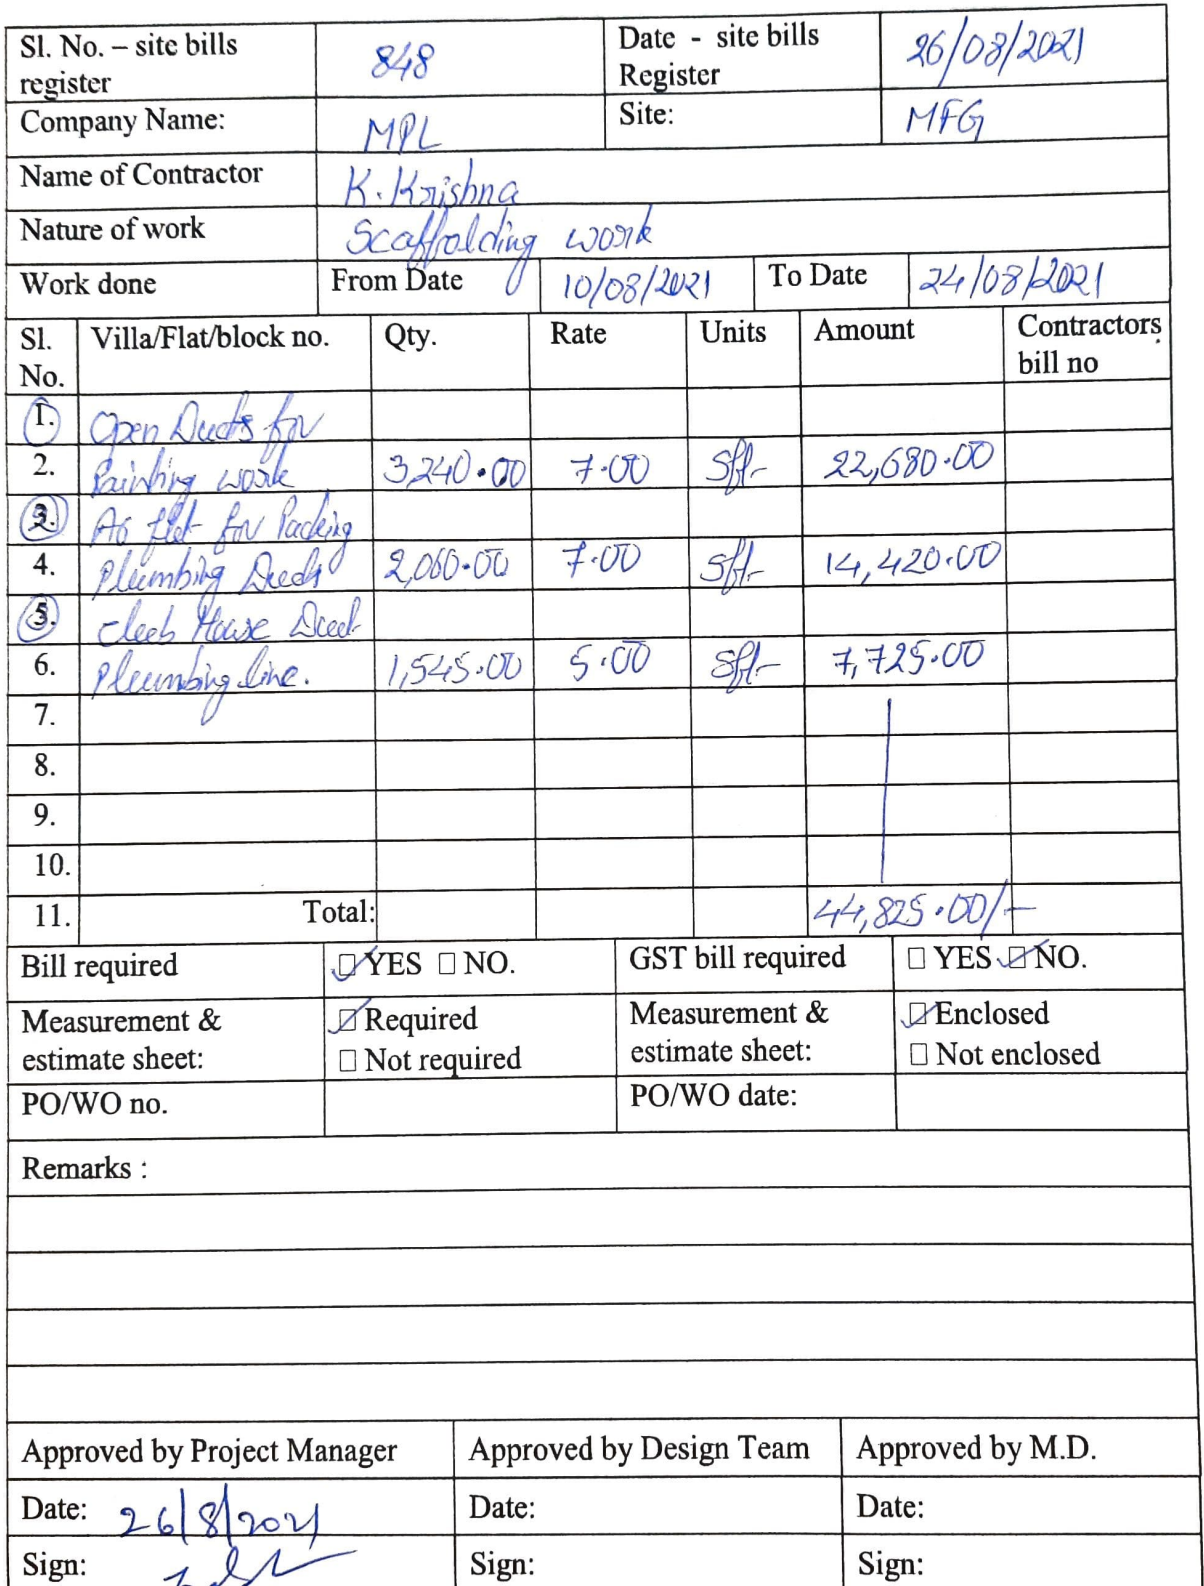 Sl. No. – site bills register 848 Date - site bills Register 26/08/2021
Company Name: MPL Site: MFG
Name of Contractor K. Krishna
Nature of work Scaffolding work
Work done From Date 10/08/2021 To Date 24/08/2021
Sl. No. Villa/Flat/block no. Qty. Rate Units Amount Contractors bill no
1. Open Ducts for
2. Painting work 3,240.00 7.00 Sft- 22,680.00
3. flat for Packing
4. Plumbing Ducts 2,060.00 7.00 Sft- 14,420.00
5. Club House Duct
6. Plumbing line. 1,545.00 5.00 Sft- 7,725.00
7.
8.
9.
10.
11. Total: 44,825.00/-
Bill required YES NO. GST bill required YES NO.
Measurement & estimate sheet: Required Measurement & estimate sheet: Enclosed
Not required Not enclosed
PO/WO no. PO/WO date:
Remarks :
Approved by Project Manager Approved by Design Team Approved by M.D.
Date: 26/8/2021 Date: Date:
Sign: Sign: Sign: